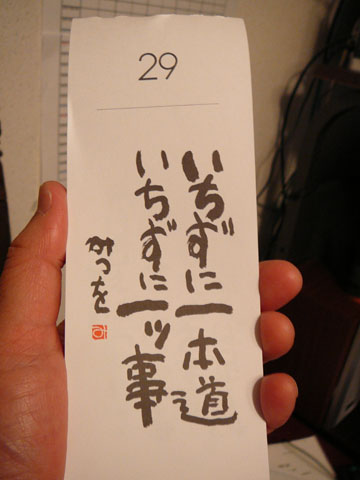 29
いちずに一本道
いちずに一ッ事
みつを